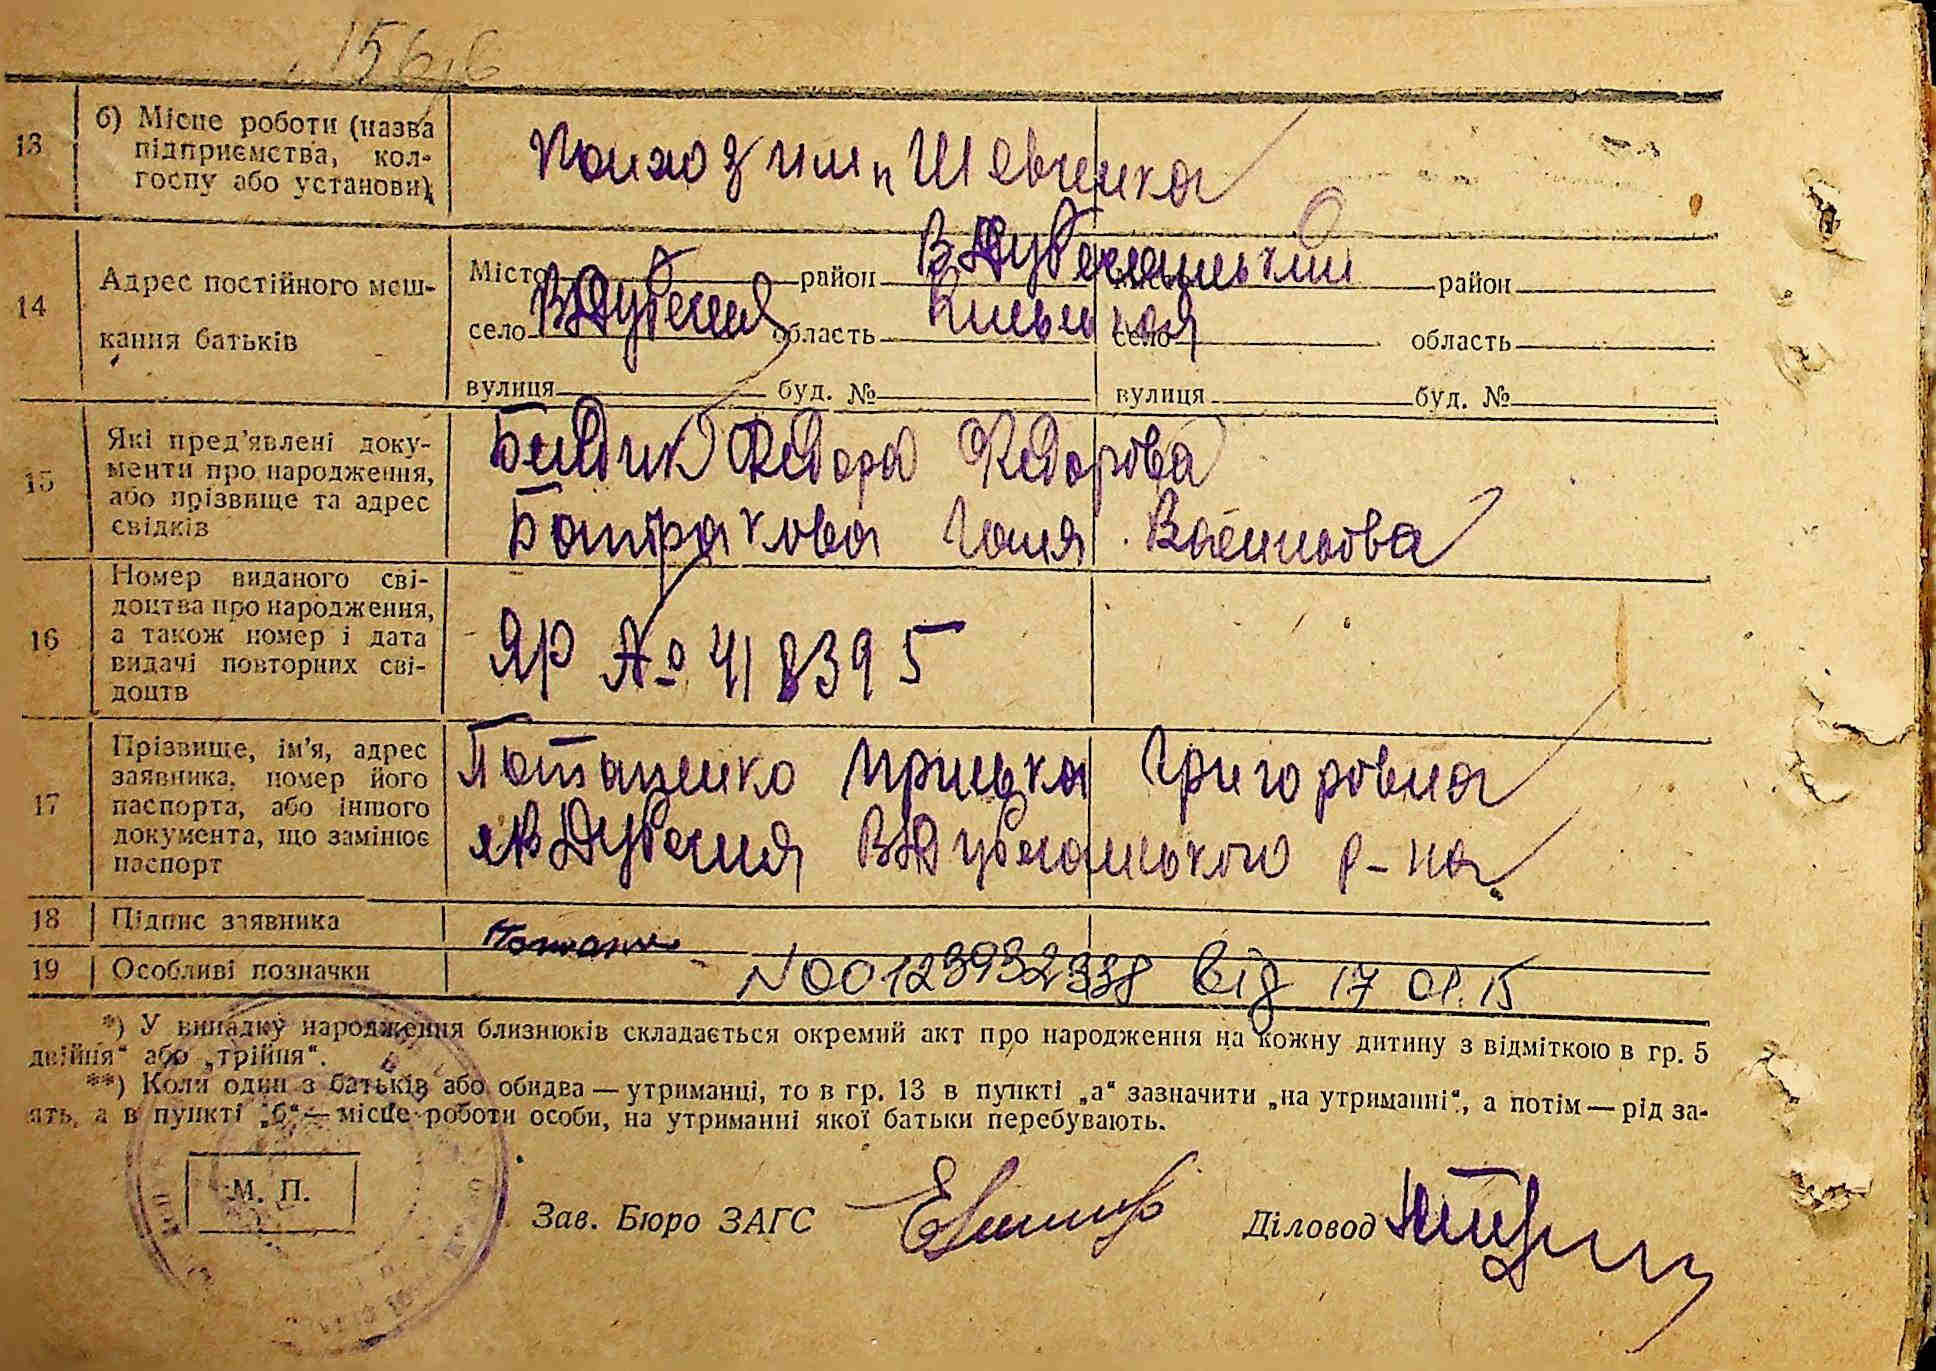 156,6
13 б) Місце роботи (назва підприємства, колгоспу або установи)
Колхоз им Шевченка
14 Адрес постійного мешкання батьків
Місто район В Дубечанський район
село В Дубечня область Київська село область
вулиця буд. № вулиця буд. №
15 Які пред'явлені документи про народження, або прізвище та адрес свідків
Федора Федорова
Батракова Ганя
16 Номер виданого свідоцтва про народження, а також номер і дата видачі повторних свідоцтв
ЯР № 418395
17 Прізвище, ім'я, адрес заявника, номер його паспорта, або іншого документа, що замінює паспорт
Потапенко Принька Григоровна
В Дубечня В Дубечанського р-на
18 Підпис заявника
19 Особливі позначки
N00123932338 від 17 01.15
*) У випадку народження близнюків складається окремий акт про народження на кожну дитину з відміткою в гр. 5
двійня“ або „трійня“.
**) Коли один з батьків або обидва — утриманці, то в гр. 13 в пункті „а“ зазначити „на утриманні“, а потім — рід за-
ять, а в пункті „б“ — місце роботи особи, на утриманні якої батьки перебувають.
М. П.
Зав. Бюро ЗАГС Діловод